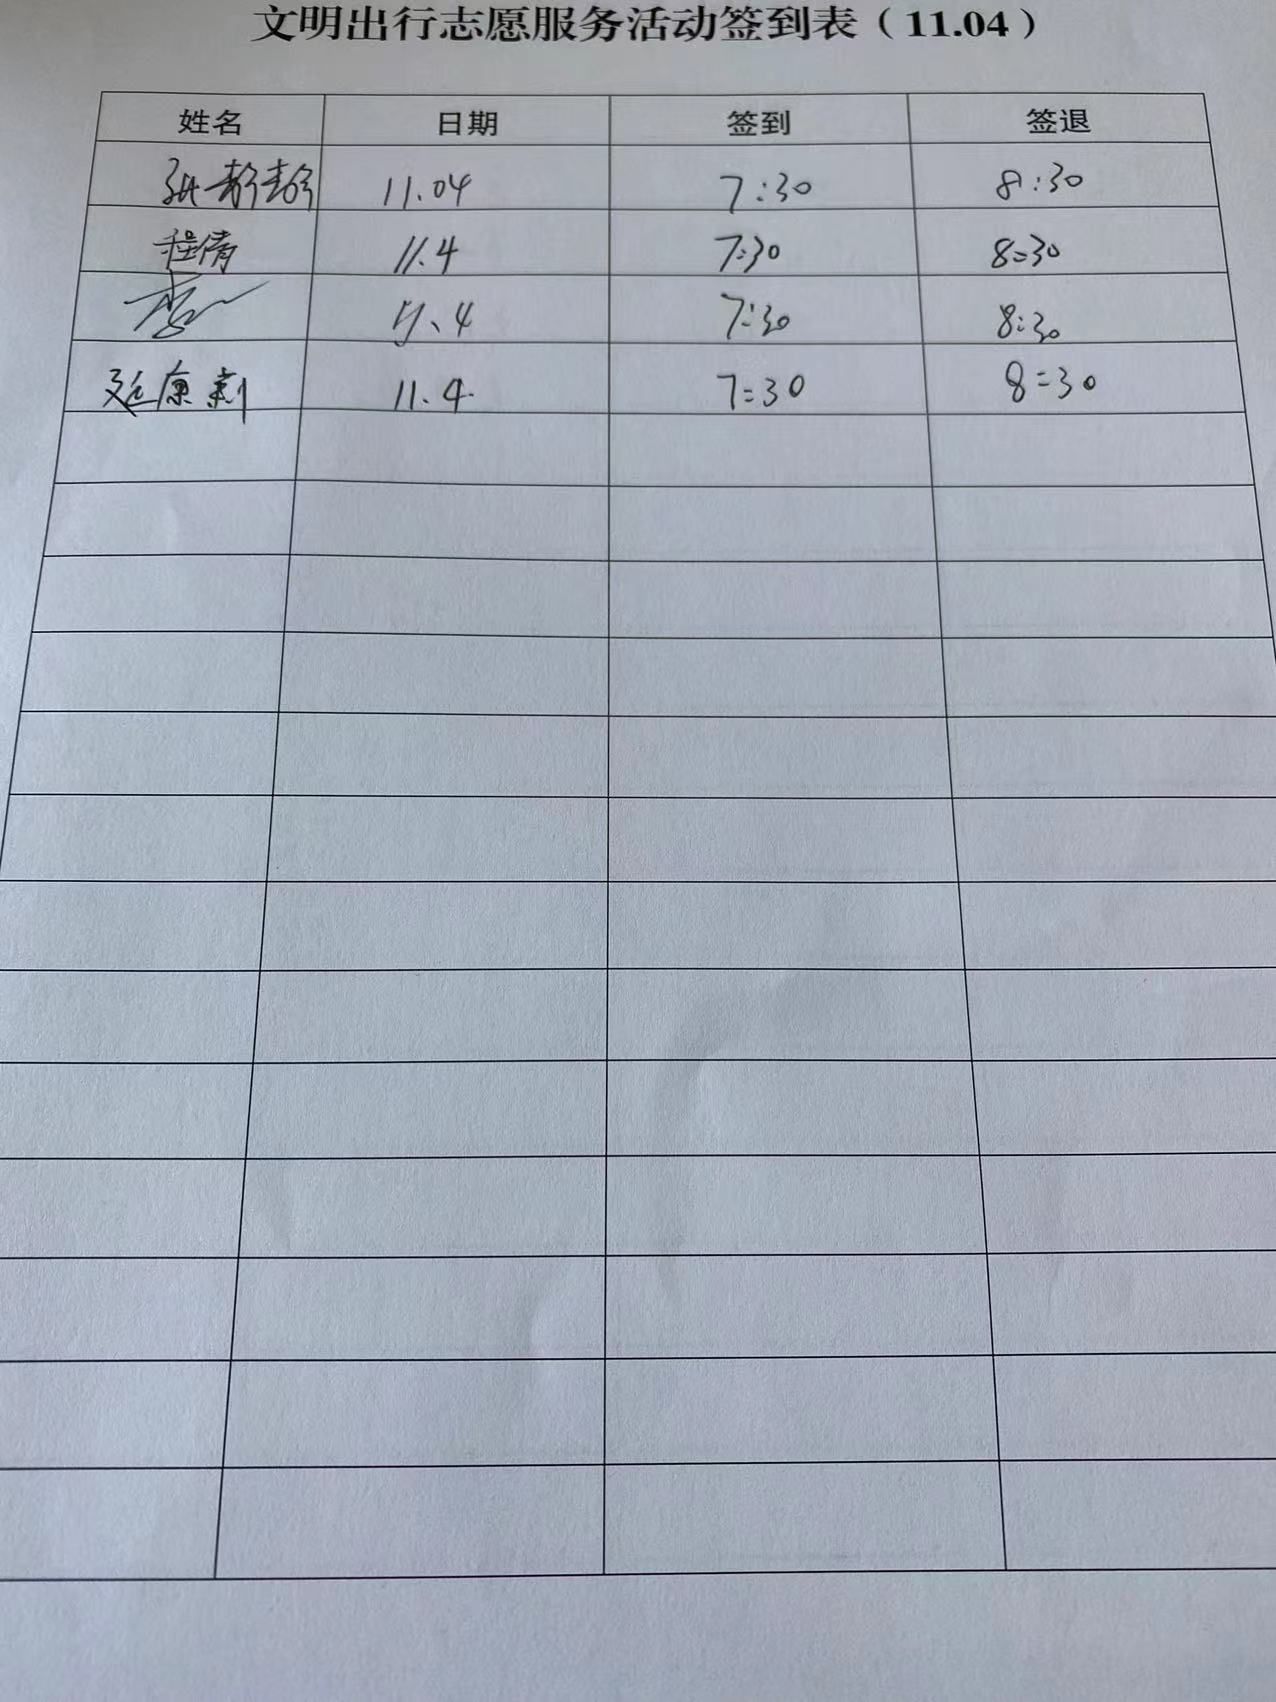 文明出行志愿服务活动签到表（11.04）
姓名 日期 签到 签退
张静静 11.04 7:30 8:30
程倩 11.4 7:30 8:30
11.4 7:30 8:30
延康 11.4. 7:30 8:30